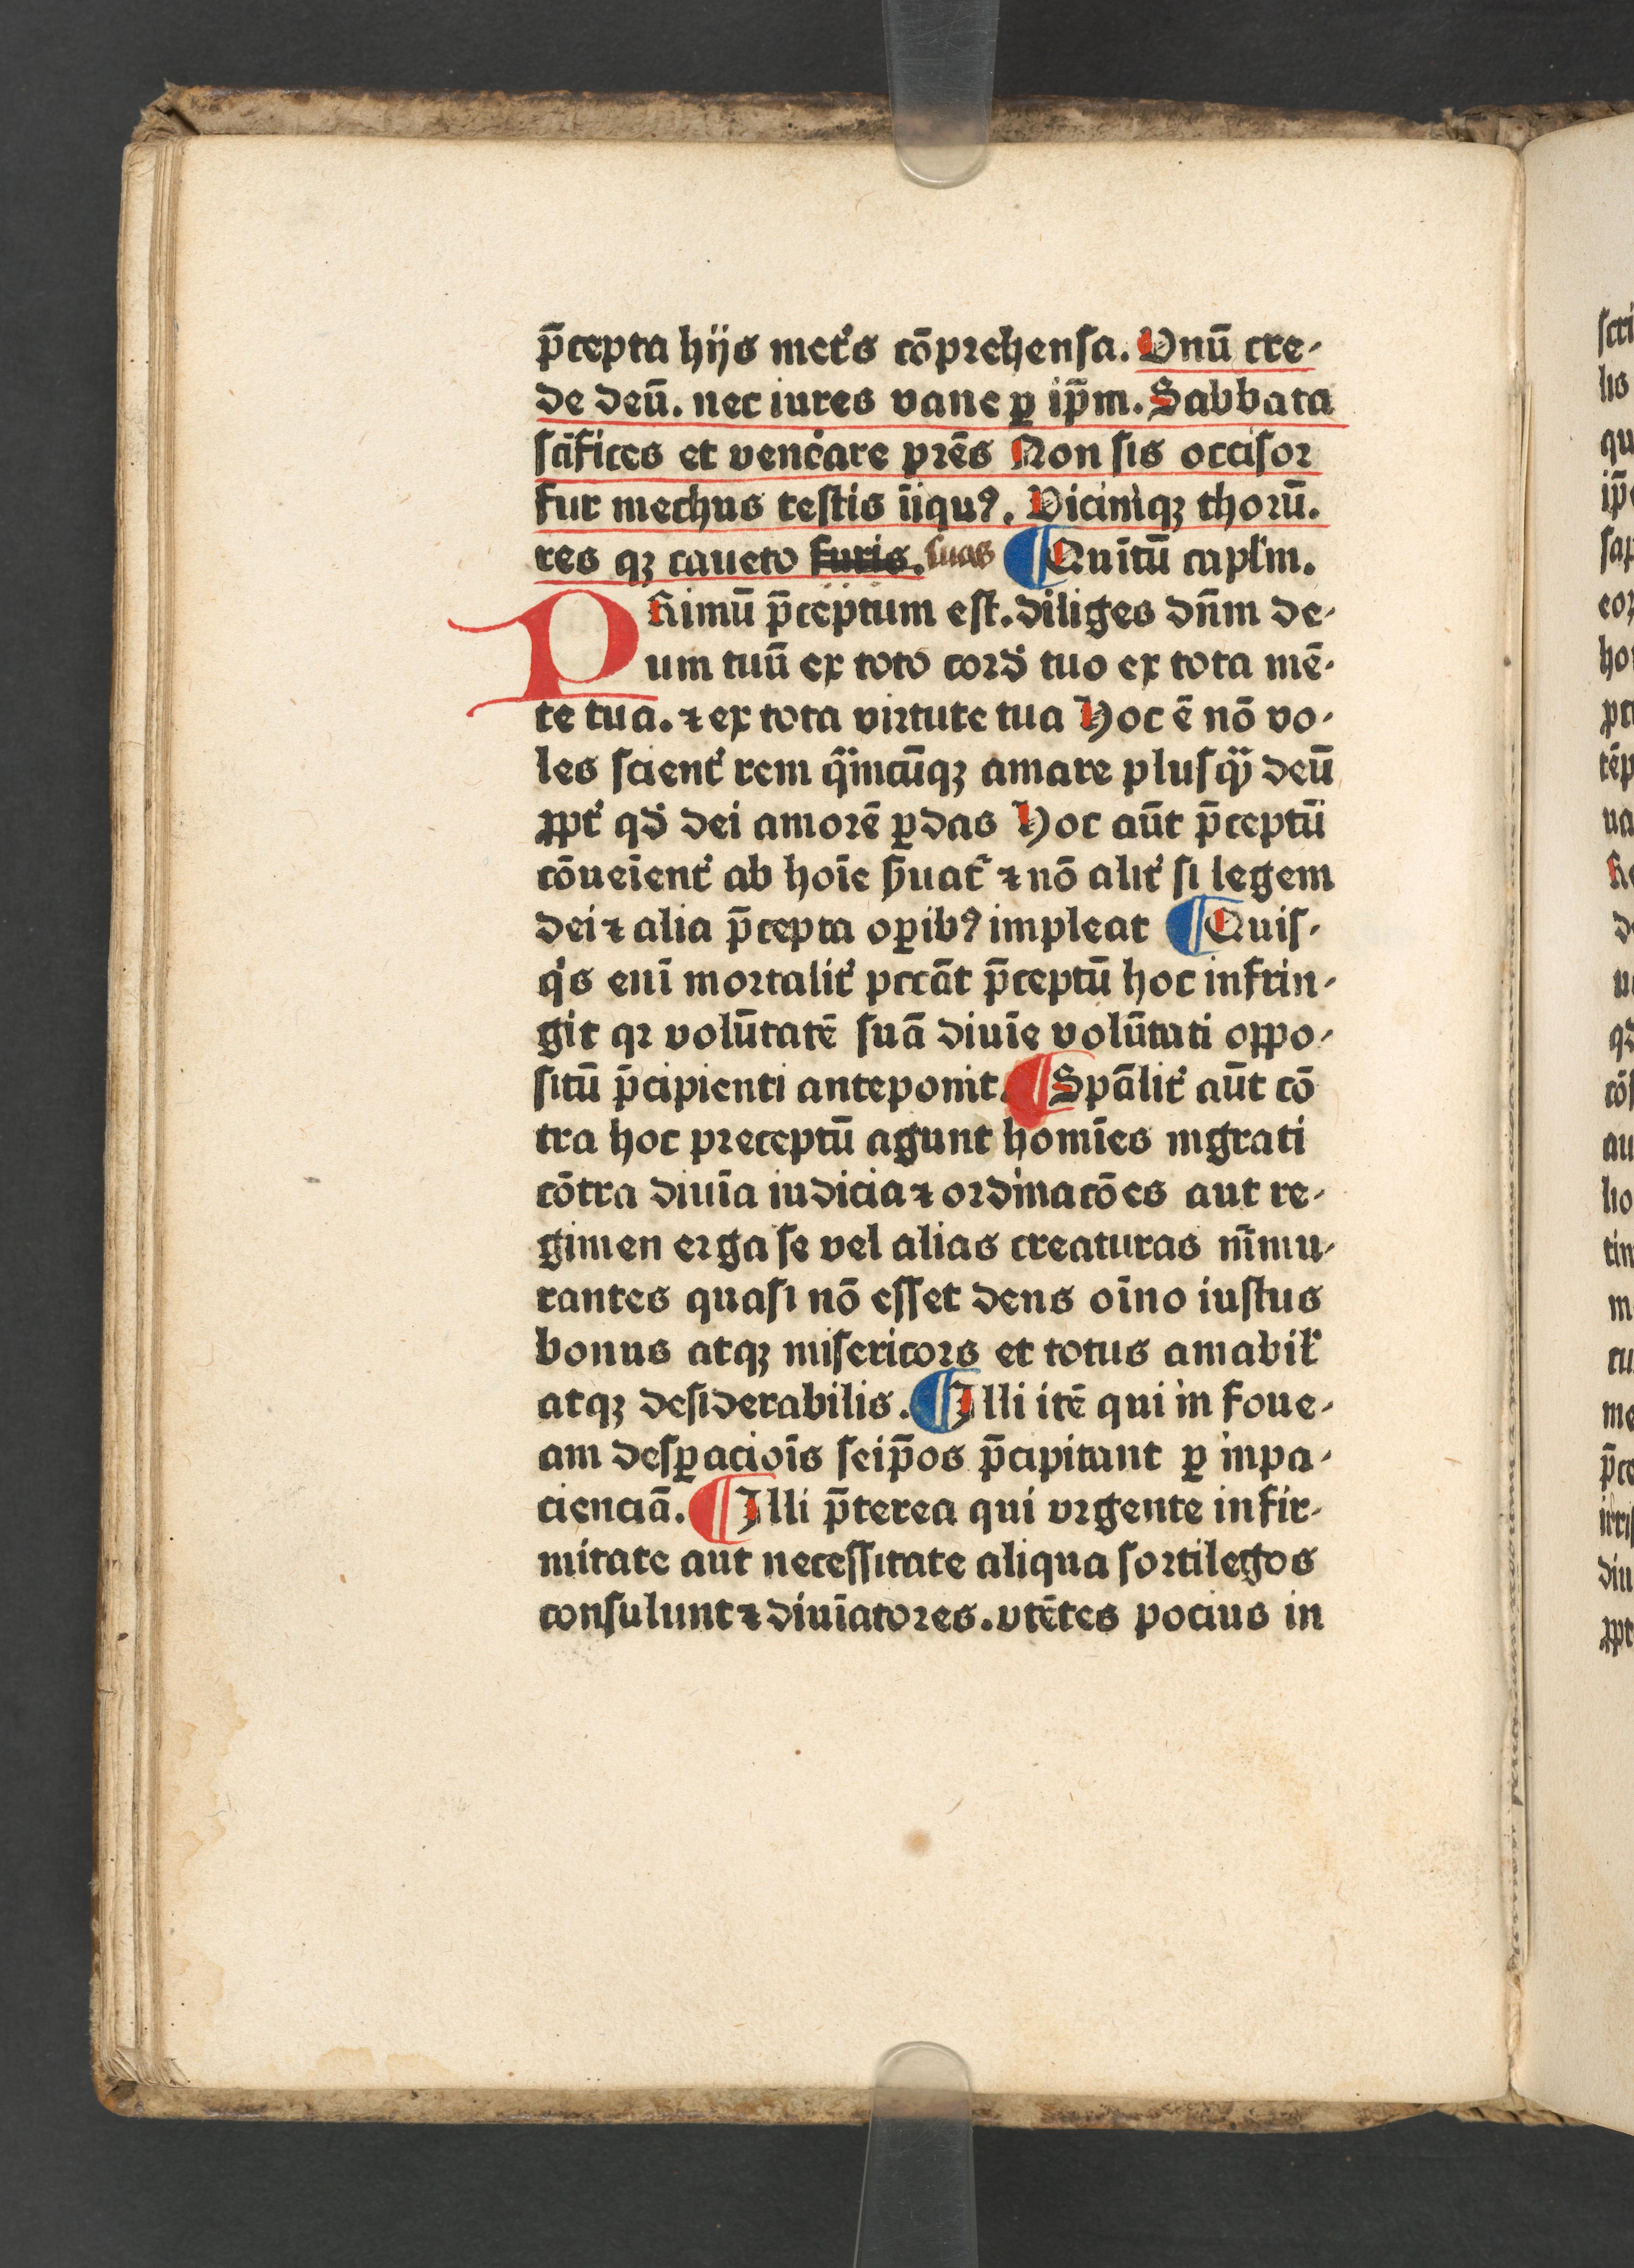 p̄cepta hijs met͛s cōprehensa. Vnū cre-
de deū. nec iures vane ꝑ ip̄m. Sabbata
scīfices et venērare prēs Non sis occisor
fur mechus testis īiquꝰ. Vicinīqꝫ thorū.
res qꝫ caueto furis. suas ¶ Quītū capl̄m.
PRimū p̄ceptum est. diliges dn̄m de-
um tuū ex toto cord̛ tuo ex tota mē-
te tua. ⁊ ex tota virtute tua Hoc ē nō vo-
les scient͛ rem q̄mcūqꝫ amare plusqꝫ deū
ꝓpt͛ qd̛ dei amorē ꝑdas Hoc aūt p̄ceptū
cōueīent͛ ab hoīe ẜuat͛ ⁊ nō alit͛ si legem
dei ⁊ alia p̄cepta oꝑibꝰ impleat ¶ Quis-
q̇s enī mortalit͛ pccāt p̄ceptū hoc infrin-
git qꝛ volūtatē suā diuīe volūtati oppo-
sitū p̄cipienti anteponit. ¶ Spālit͛ aūt cō
tra hoc preceptū agunt homīes ingrati
cōtra diuīa iudicia ⁊ ordinacōes aut re-
gimen erga se vel alias creaturas m̄mu-
rantes quasi nō esset deus oīno iustus
bonus atqꝫ misericors et totus amabil͛
atqꝫ desiderabilis. ¶ Illi itē qui in foue-
am desꝑacioīs seip̄os p̄cipitant ꝑ inpa-
cienciā. ¶ Illi p̄terea qui vrgente infir-
mitate aut necessitate aliqua sortilegos
consulunt ⁊ diuīatores. vtētes pocius in